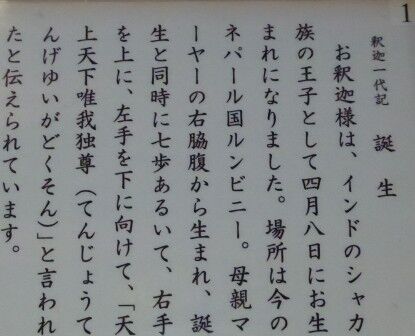 1
釈迦一代記
誕生
お釈迦様は、インドのシャカ
族の王子として四月八日にお生
まれになりました。場所は今の
ネパール国ルンビニー。母親マ
ーヤーの右脇腹から生まれ、誕
生と同時に七歩あるいて、右手
を上に、左手を下に向けて、「天
上天下唯我独尊（てんじょうて
んげゆいがどくそん）」と言われ
たと伝えられています。